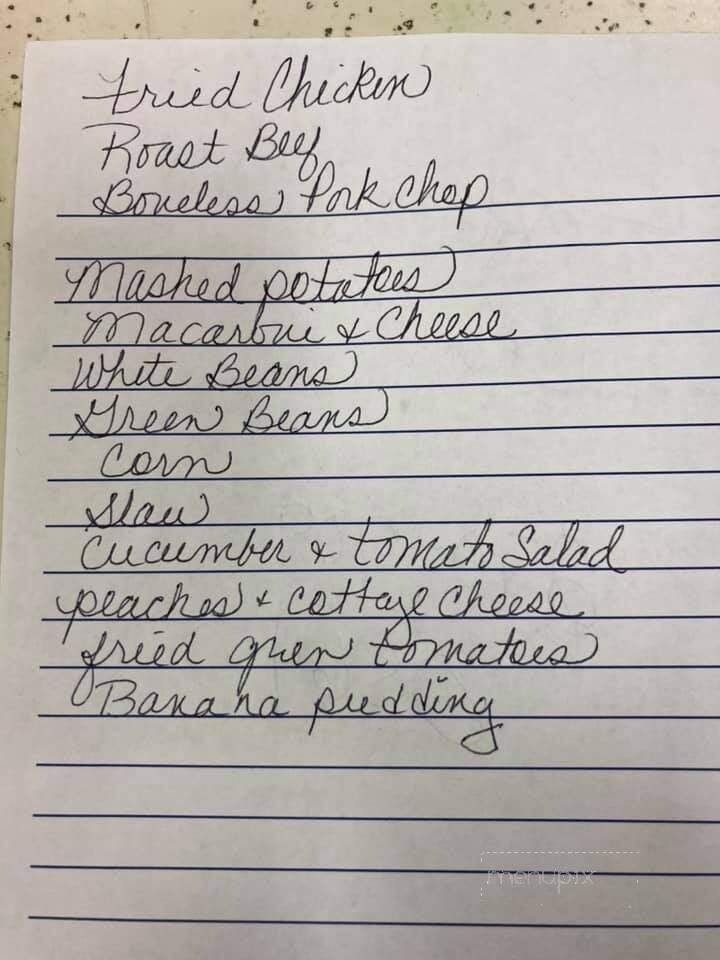 Fried Chicken
Roast Beef
Boneless Pork Chop
Mashed potatoes
Macaroni & Cheese
White Beans
Green Beans
Corn
Slaw
Cucumber & tomato Salad
peaches & cottage cheese
fried green tomatoes
Banana pudding
menupix